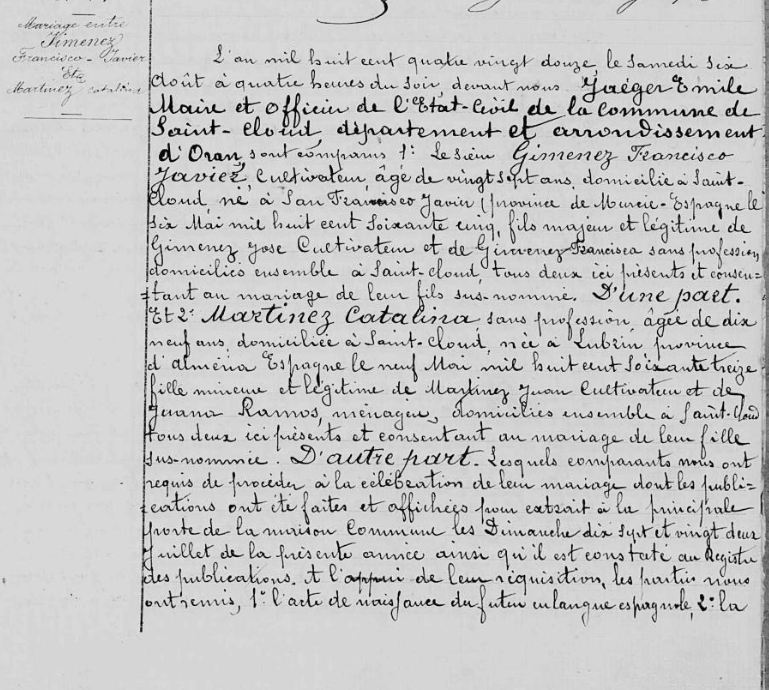 Mariage entre
Ximenez
Francisco-Javier
Et
Martinez Catalina
L'an mil huit cent quatre vingt douze, le Samedi Six
Août à quatre heures du soir, devant nous Jaéger Emile
Maire et Officier de l'Etat-Civil de la Commune de
Saint-Cloud département et arrondissement
d'Oran, sont comparus 1º Le sieur Gimenez Francisco
Javier, Cultivateur, âgé de vingt sept ans, domicilié à Saint-
Cloud, né à San Francisco Javier (province de Murcie-Espagne le
Six Mai mil huit cent soixante cinq, fils majeur et légitime de
Gimenez Jose Cultivateur et de Francisca sans profession,
domiciliés ensemble à Saint-Cloud, tous deux ici présents et consen=
=tant au mariage de leur fils sus-nommé. D'une part.
Et 2º Martinez Catalina sans profession, âgée de dix
neuf ans, domiciliée à Saint-Cloud, née à Lubrin province
d'Alméria Espagne le neuf Mai mil huit cent soixante treize
fille mineure et légitime de Martinez Juan Cultivateur et de
Juana Ramos, ménagère, domiciliés ensemble à Saint-Cloud
tous deux ici présents et consentant au mariage de leur fille
sus-nommée. D'autre part. Lesquels comparants nous ont
requis de procéder à la célébration de leur mariage dont les publi=
=cations ont été faites et affichées pour extrait à la principale
porte de la maison Commune les Dimanche dix sept et vingt deux
Juillet de la présente année ainsi qu'il est constaté au Registre
des publications. A l'appui de leur réquisition, les parties nous
ont remis, 1º l'acte de naissance du futur en langue espagnole, 2º la